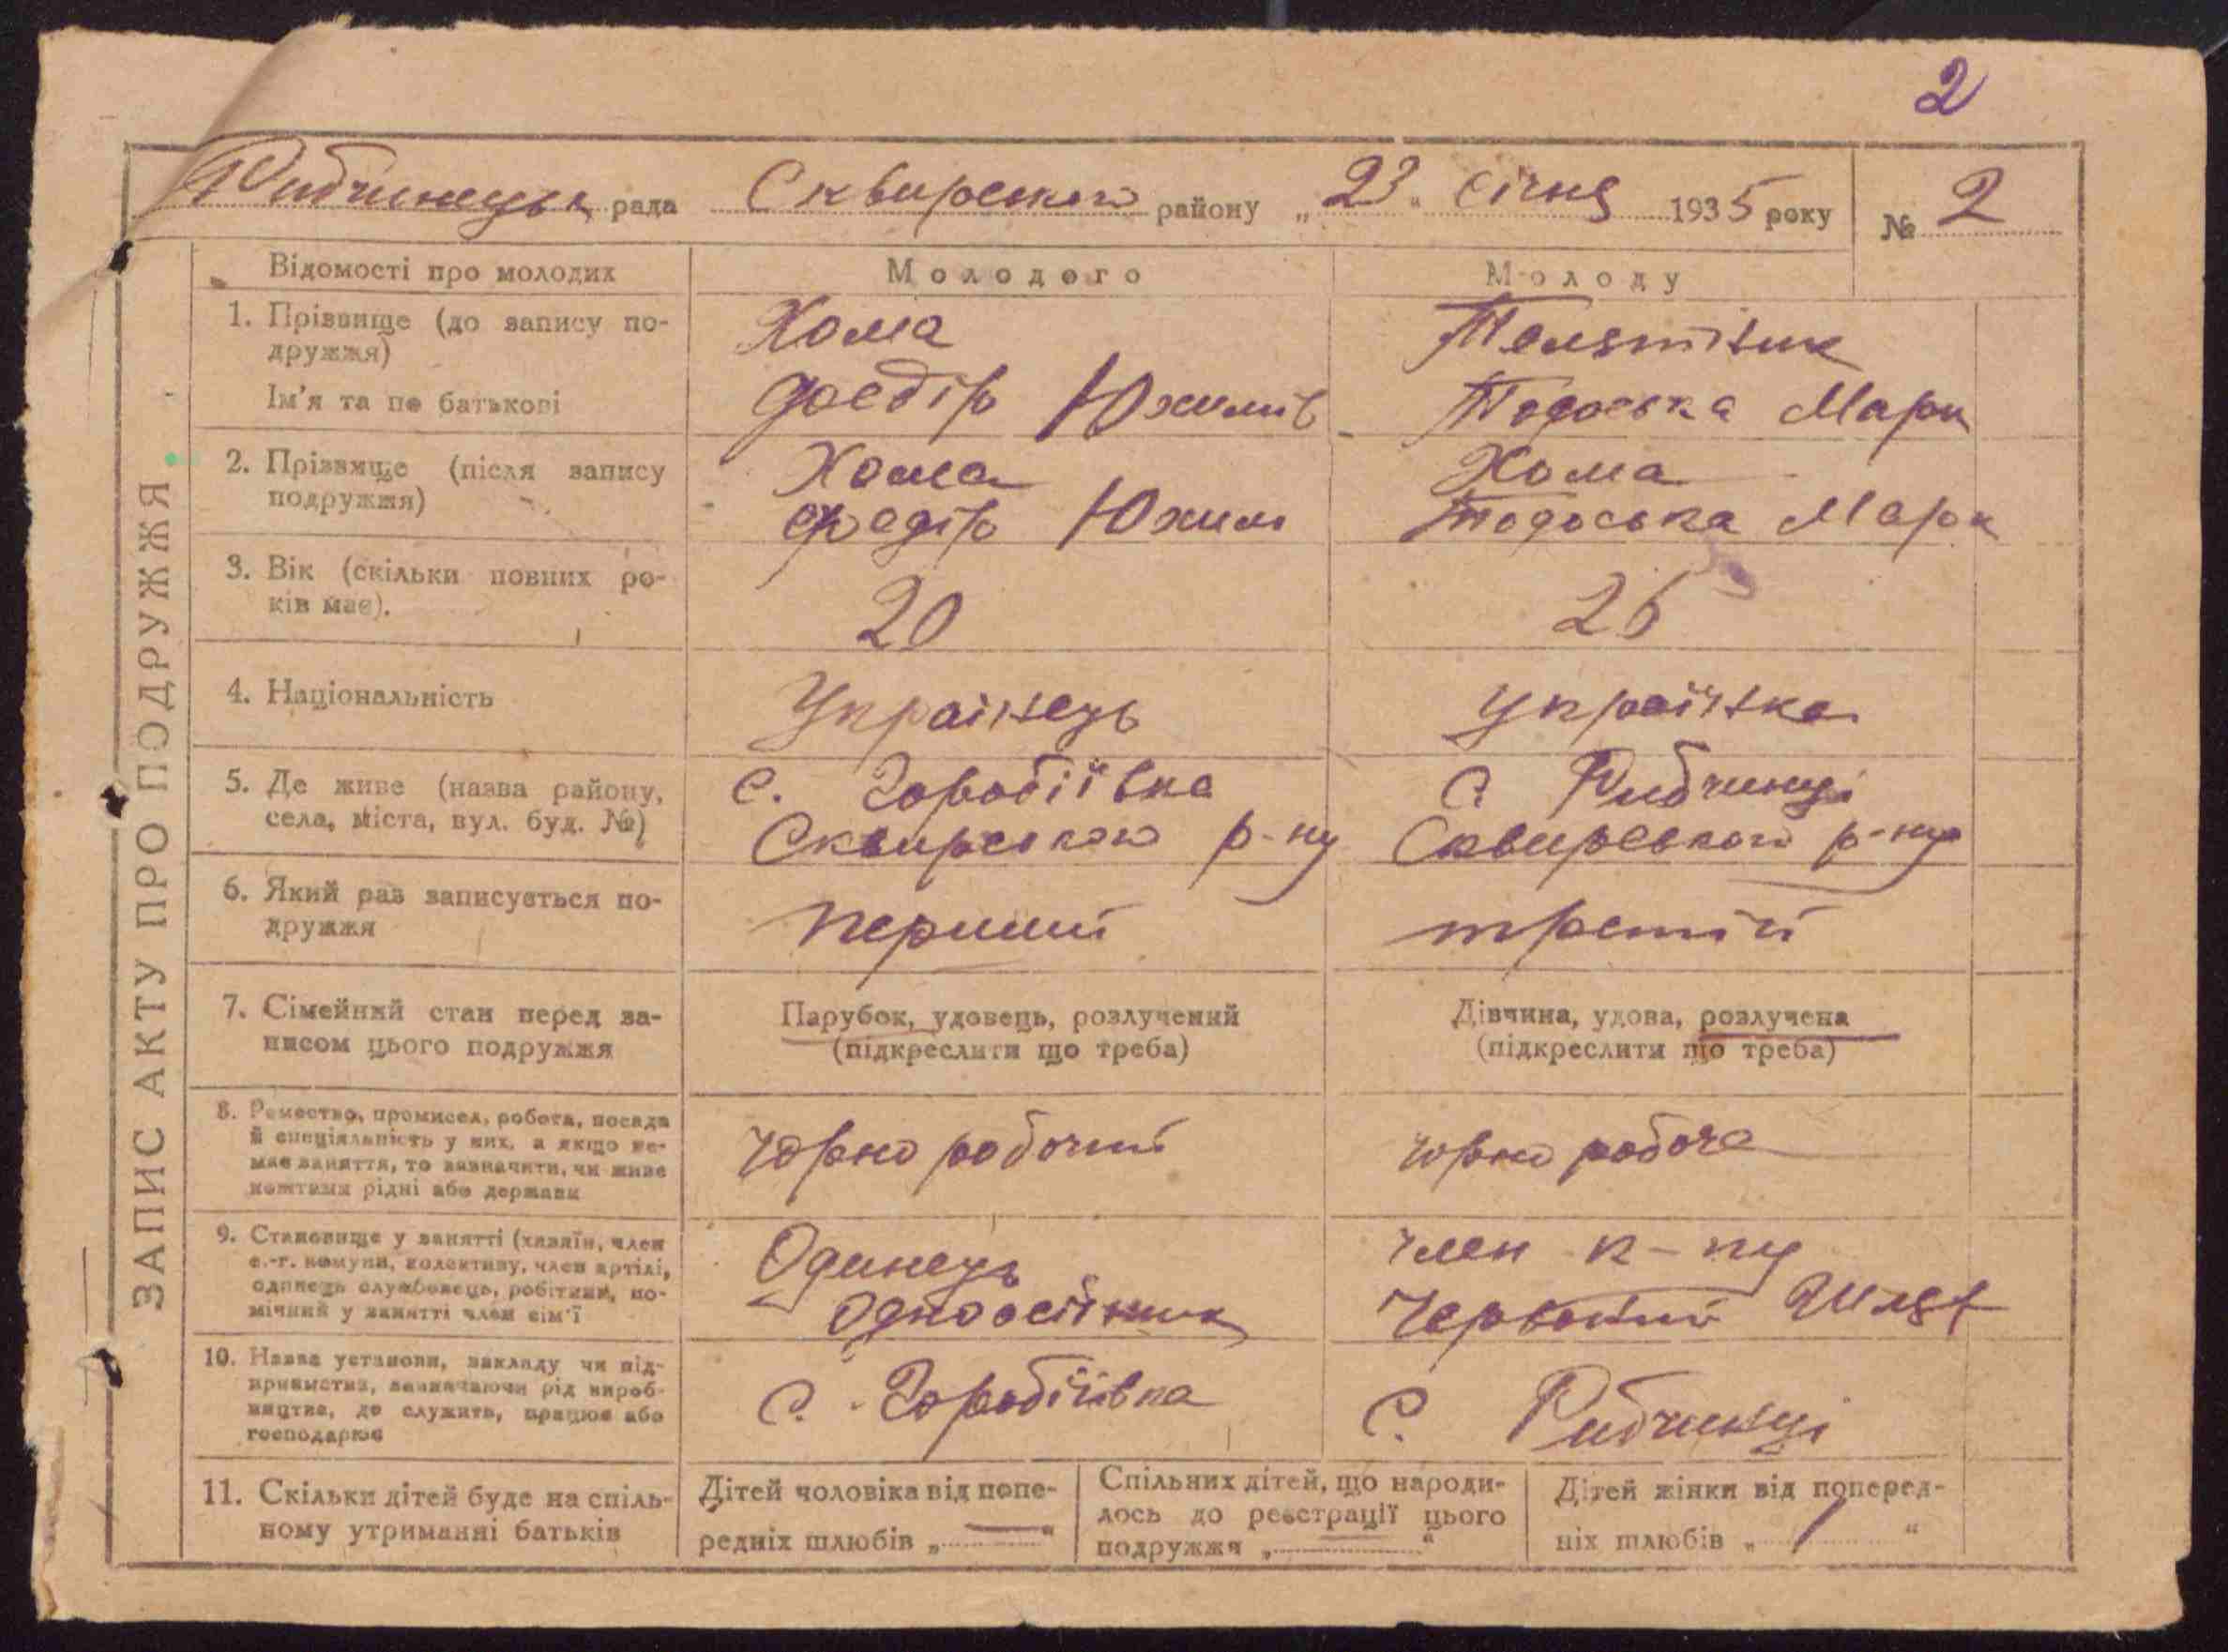 2
Рибчинецька рада Сквирського району „23“ січня 1935 року № 2
ЗАПИС АКТУ ПРО ПОДРУЖЖЯ
Відомості про молодих
Молодого
Молоду
1. Прізвище (до запису по-
дружжя)
Ім'я та по батькові
Хома
Федір Юхимів
Тодоська Марк
2. Прізвище (після запису
подружжя)
Хома
Федір Юхим
Хома
Тодоська Марк
3. Вік (скільки повних ро-
ків має).
20
4. Національність
Українець
Українка
5. Де живе (назва району,
села, міста, вул. буд. №)
с. Горобіївка
Сквирського р-ну
с. Рибчинці
Сквирського р-ну
6. Який раз записується по-
дружжя
перший
третій
7. Сімейний стан перед за-
писом цього подружжя
Парубок, удовець, розлучений
(підкреслити що треба)
Дівчина, удова, розлучена
(підкреслити що треба)
8. Ремество, промисел, робота, посада
й спеціяльність у них, а якщо не-
має заняття, то зазначити, чи живе
коштами рідні або держави
чорно робочий
чорно робоча
9. Становище у занятті (хазяїн, член
с.-г. комуни, колективу, член артілі,
одинець службовець, робітник, по-
мічний у занятті член сім'ї
Одинець
Одноосібник
член к-пу
Червоний Шлях
10. Назва установи, закладу чи під-
приємства, зазначаючи рід вироб-
ництва, де служить, працює або
господарює
с. Горобіївка
с. Рибчинці
11. Скільки дітей буде на спіль-
ному утриманні батьків
Дітей чоловіка від попе-
редніх шлюбів „—“
Спільних дітей, що народи-
лось до реєстрації цього
подружжя „—“
Дітей жінки від поперед-
ніх шлюбів „1“